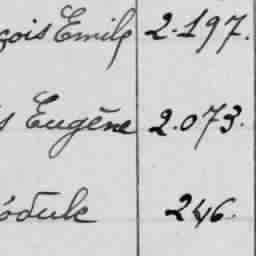 çois Emile 2.197.
s Eugène 2.073.
odule 246.